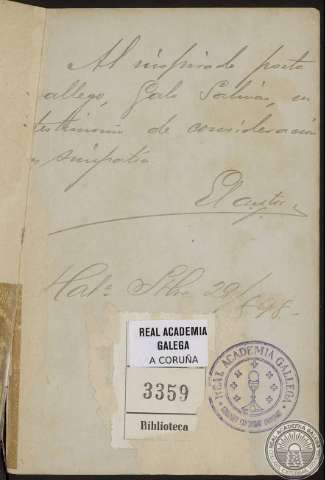 Al inspirado poeta
gallego, Galo Salinas, en
testimonio de consideración
y simpatía
El autor
Hab.ª Sbre 29/898.
REAL ACADEMIA
GALEGA
A CORUÑA
3359
Biblioteca
REAL ACADEMIA GALLEGA
REAL ACADEMIA GALEGA